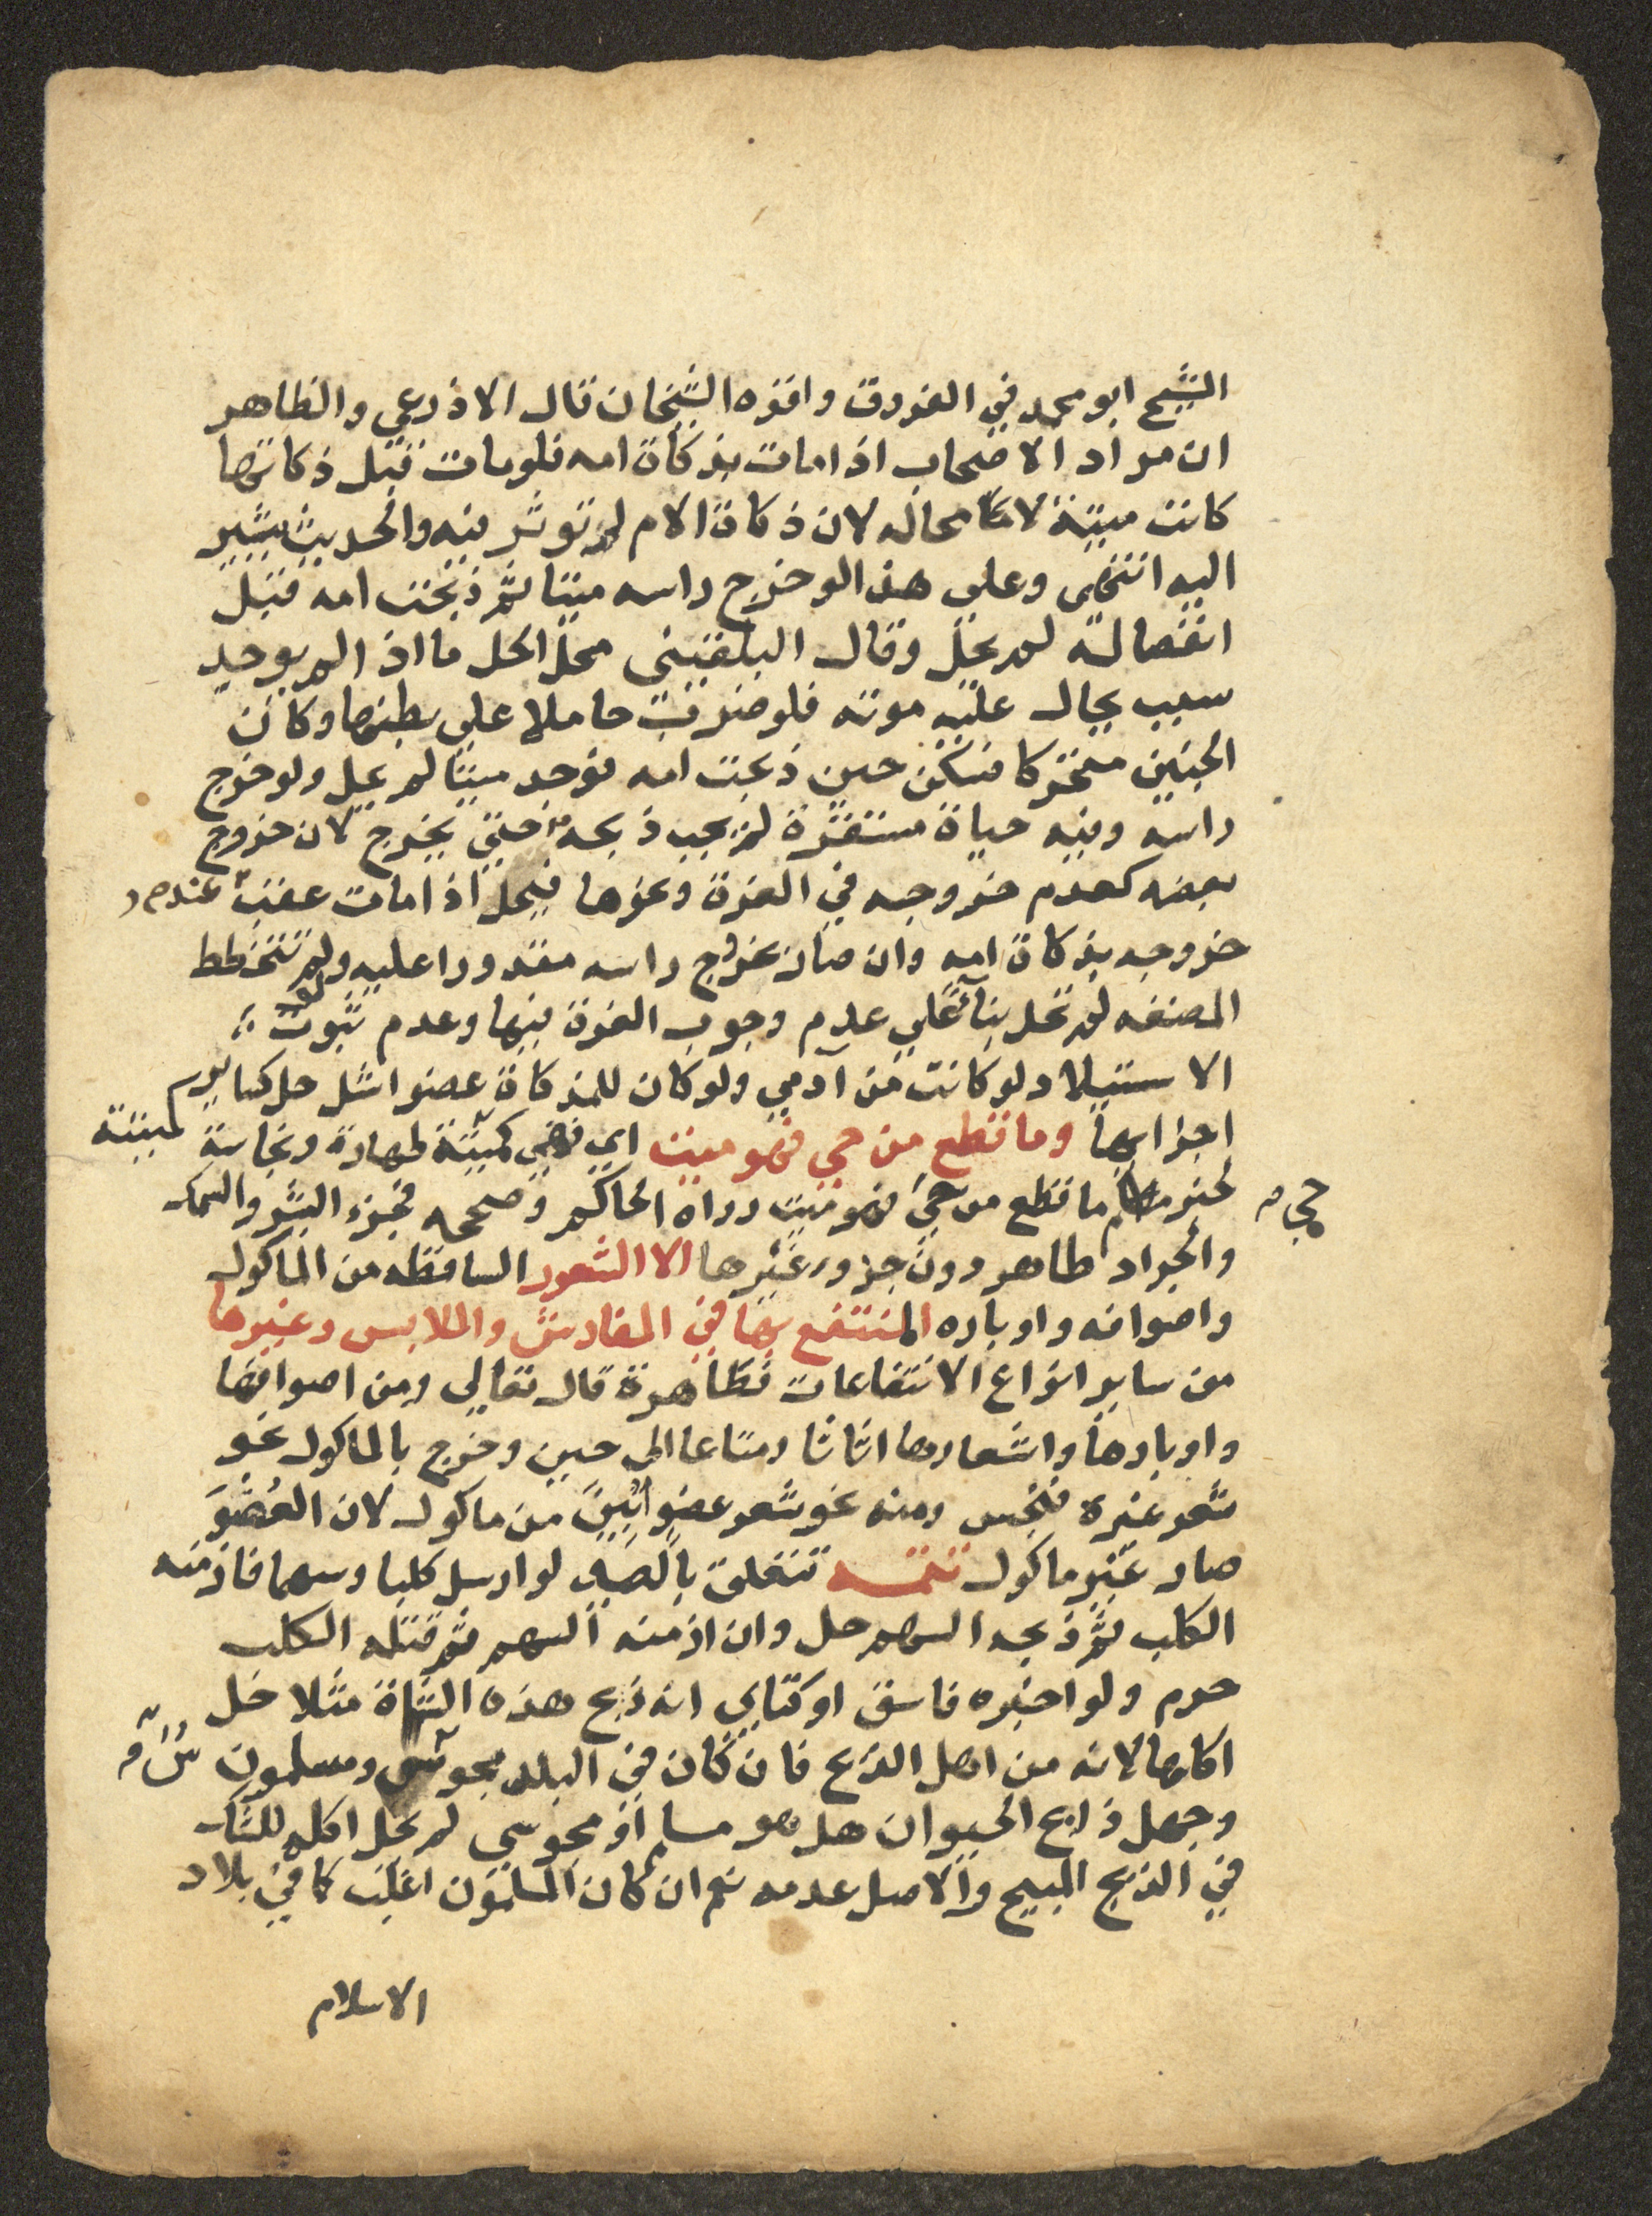 الشيخ ابو محمد في الفروق واقره الشيخان قال الاذرعي والظاهر
ان مراد الاصحاب اذا مات بذكاة امه فلو مات قبل ذكاتها
كانت ميتة لا محاله لان ذكاة الام لم توثر فيه والحديث يشير
اليه انتهى وعلى هذا لو خرج راسه ميتا ثم ذبحت امه قبل
انفصاله لم يحل وقال البلقيني محل الحل ما اذا لم يوجد
سبب يحال عليه موته فلو ضربت حاملا على بطنها وكان
الجنين متحركا فسكن حين ذبحت امه فوجد ميتا لم يحل ولو خرج
راسه وفيه حياة مستقرة لم يجب ذبحه حتى يخرج لان خروج
بعضه كعدم خروجه في الغرة ونحوها فيحل اذا مات عقب
خروجه بذكاة امه وان صار بخروج راسه مقدورا عليه ولو لم تتخطط
المضغه لم تحل بناء على عدم وجوب الغرة فيها وعدم ثبوت
الاستيلاد لو كانت من آدمي ولو كان للمذكاة عضو اشل حل كساير
اجزايها وما قطع من حي فهو ميت اي فهي كميتته طهارة ونجاسة
لخبر ما قطع من حي فهو ميت رواه الحاكم وصححه فجزء البشر والسمك
حي
والجراد طاهر دون جزء غيرها الا الشعور الساقطه من الماكول
واصوافه واوباره المنتفع بها في المفارش والملابس وغيرها
من ساير انواع الانتفاعات فطاهرة قال تعالى ومن اصوافها
واوبارها واشعارها اثاثا ومتاعا الى حين وخرج بالماكول نحو
شعر غيره فنجس ومنه نحو شعر عضو ابين من ماكول لان العضو
صار غير ماكول تتمـــه تتعلق بالصيد لو ارسل كلبا وسهما فازمنه
الكلب ثم ذبحه السهم حل وان ازمنه السهم ثم قتله الكلب
حرم ولو اخبره فاسق او كتابي انه ذبح هذه الشاة مثلا حل
اكلها لانه من اهل الذبح فان كان في البلد مجوس ومسلمون
وجهل ذابح الحيوان هل هو مسلم او مجوسي لم يحل اكله للشك
في الذبح المبيح والاصل عدمه نعم ان كان المسلمون اغلب كما في بلاد
الاسلام